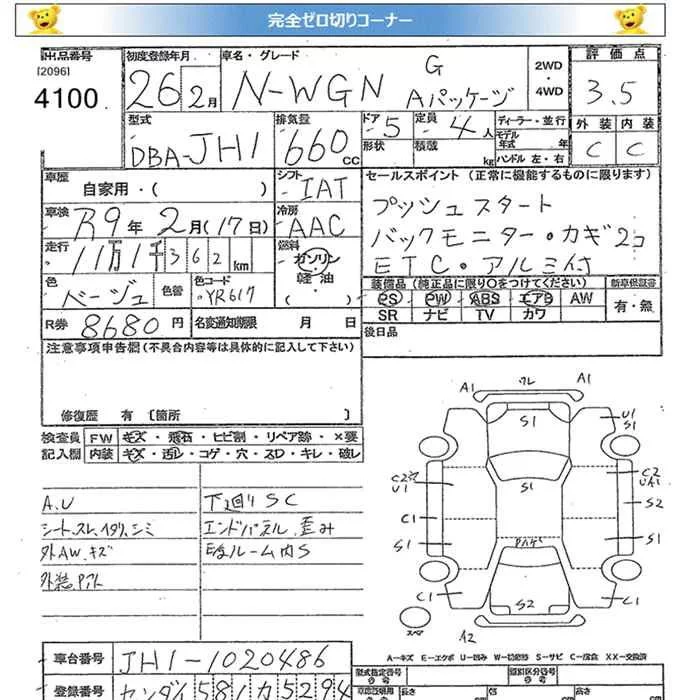 完全ゼロ切りコーナー
出品番号
[2096]
4100
初度登録年月
26 2月
車名・グレード
N-WGN G Aパッケージ
2WD
・
4WD
評価点
3.5
外装 内装
C C
型式
DBA-JH1
排気量
660cc
ドア
5
形状
定員
4人
積載
kg
ディーラー・並行
モデル年式 年
ハンドル 左・右
車歴
自家用・( )
シフト
IAT
車検
R9年2月(17日)
冷房
AAC
走行
11万1千362km
燃料
ガソリン
軽・油
( )
色
ベージュ
色替
色コード
YR617
R券 8680円
名変通知期限 月 日
セールスポイント (正常に機能するものに限ります)
プッシュスタート
バックモニター・カギ2コ
ETC・アルミ付
装備品(純正品に限り〇をつけてください)
PS PW ABS エアB AW
SR ナビ TV カワ
新車保証書
有・無
後日品
注意事項申告欄(不具合内容等は具体的に記入して下さい)
修復歴 有 〔箇所 〕
検査員記入欄
FW キズ・飛石・ヒビ割・リペア跡・×要
内装 キズ・汚レ・コゲ・穴・スロ・キレ・破レ
A.U
シート.スレ.イタリ.シミ
外AW.キズ
下廻りSC
エンドパネル.歪み
ルーム内S
A1 ワレ A1
S1
U1
S1
C2
U1
S1
C2
UA1
C1
S2
S1
S1
C1
S2
C1
スペア
A2
A－キズ E－エクボ U－凹み W－切修跡 S－サビ C－腐食 XX－交換済
車台番号 JH1-1020486
登録番号 センダイ 581 カ 5294
型式指定番号
類別区分番号